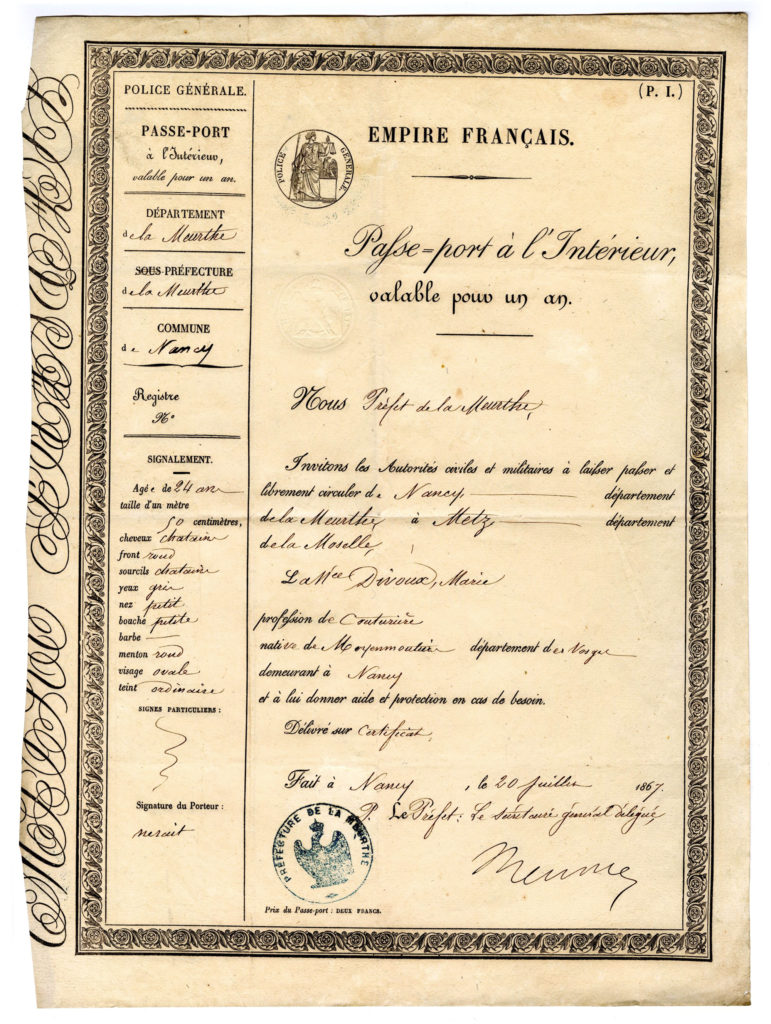 POLICE GÉNÉRALE.
PASSE-PORT
à l'Intérieur,
valable pour un an.
DÉPARTEMENT
de la Meurthe
SOUS-PRÉFECTURE
de la Meurthe
COMMUNE
de Nancy
Registre
N.o
SIGNALEMENT.
Agée de 24 ans
taille d'un mètre
50 centimètres,
cheveux chatains
front rond
sourcils chatains
yeux gris
nez petit
bouche petite
barbe
menton rond
visage ovale
teint ordinaire
SIGNES PARTICULIERS :
Signature du Porteur :
ne sait
(P. I.)
POLICE GÉNÉRALE.
EMPIRE FRANÇAIS.
Passe=port à l'Intérieur,
valable pour un an.
Nous Préfet de la Meurthe,
Invitons les Autorités civiles et militaires à laisser passer et
librement circuler de Nancy département
de la Meurthe à Metz département
de la Moselle,
La Née Divoux, Marie
profession de Couturière
native de Moyenmoutier département des Vosges
demeurant à Nancy
et à lui donner aide et protection en cas de besoin.
Délivré sur Certificat,
Fait à Nancy, le 20 Juillet 1867.
P. Le Préfet : Le secrétaire général délégué,
PRÉFECTURE DE LA MEURTHE
Prix du Passe-port : DEUX FRANCS.